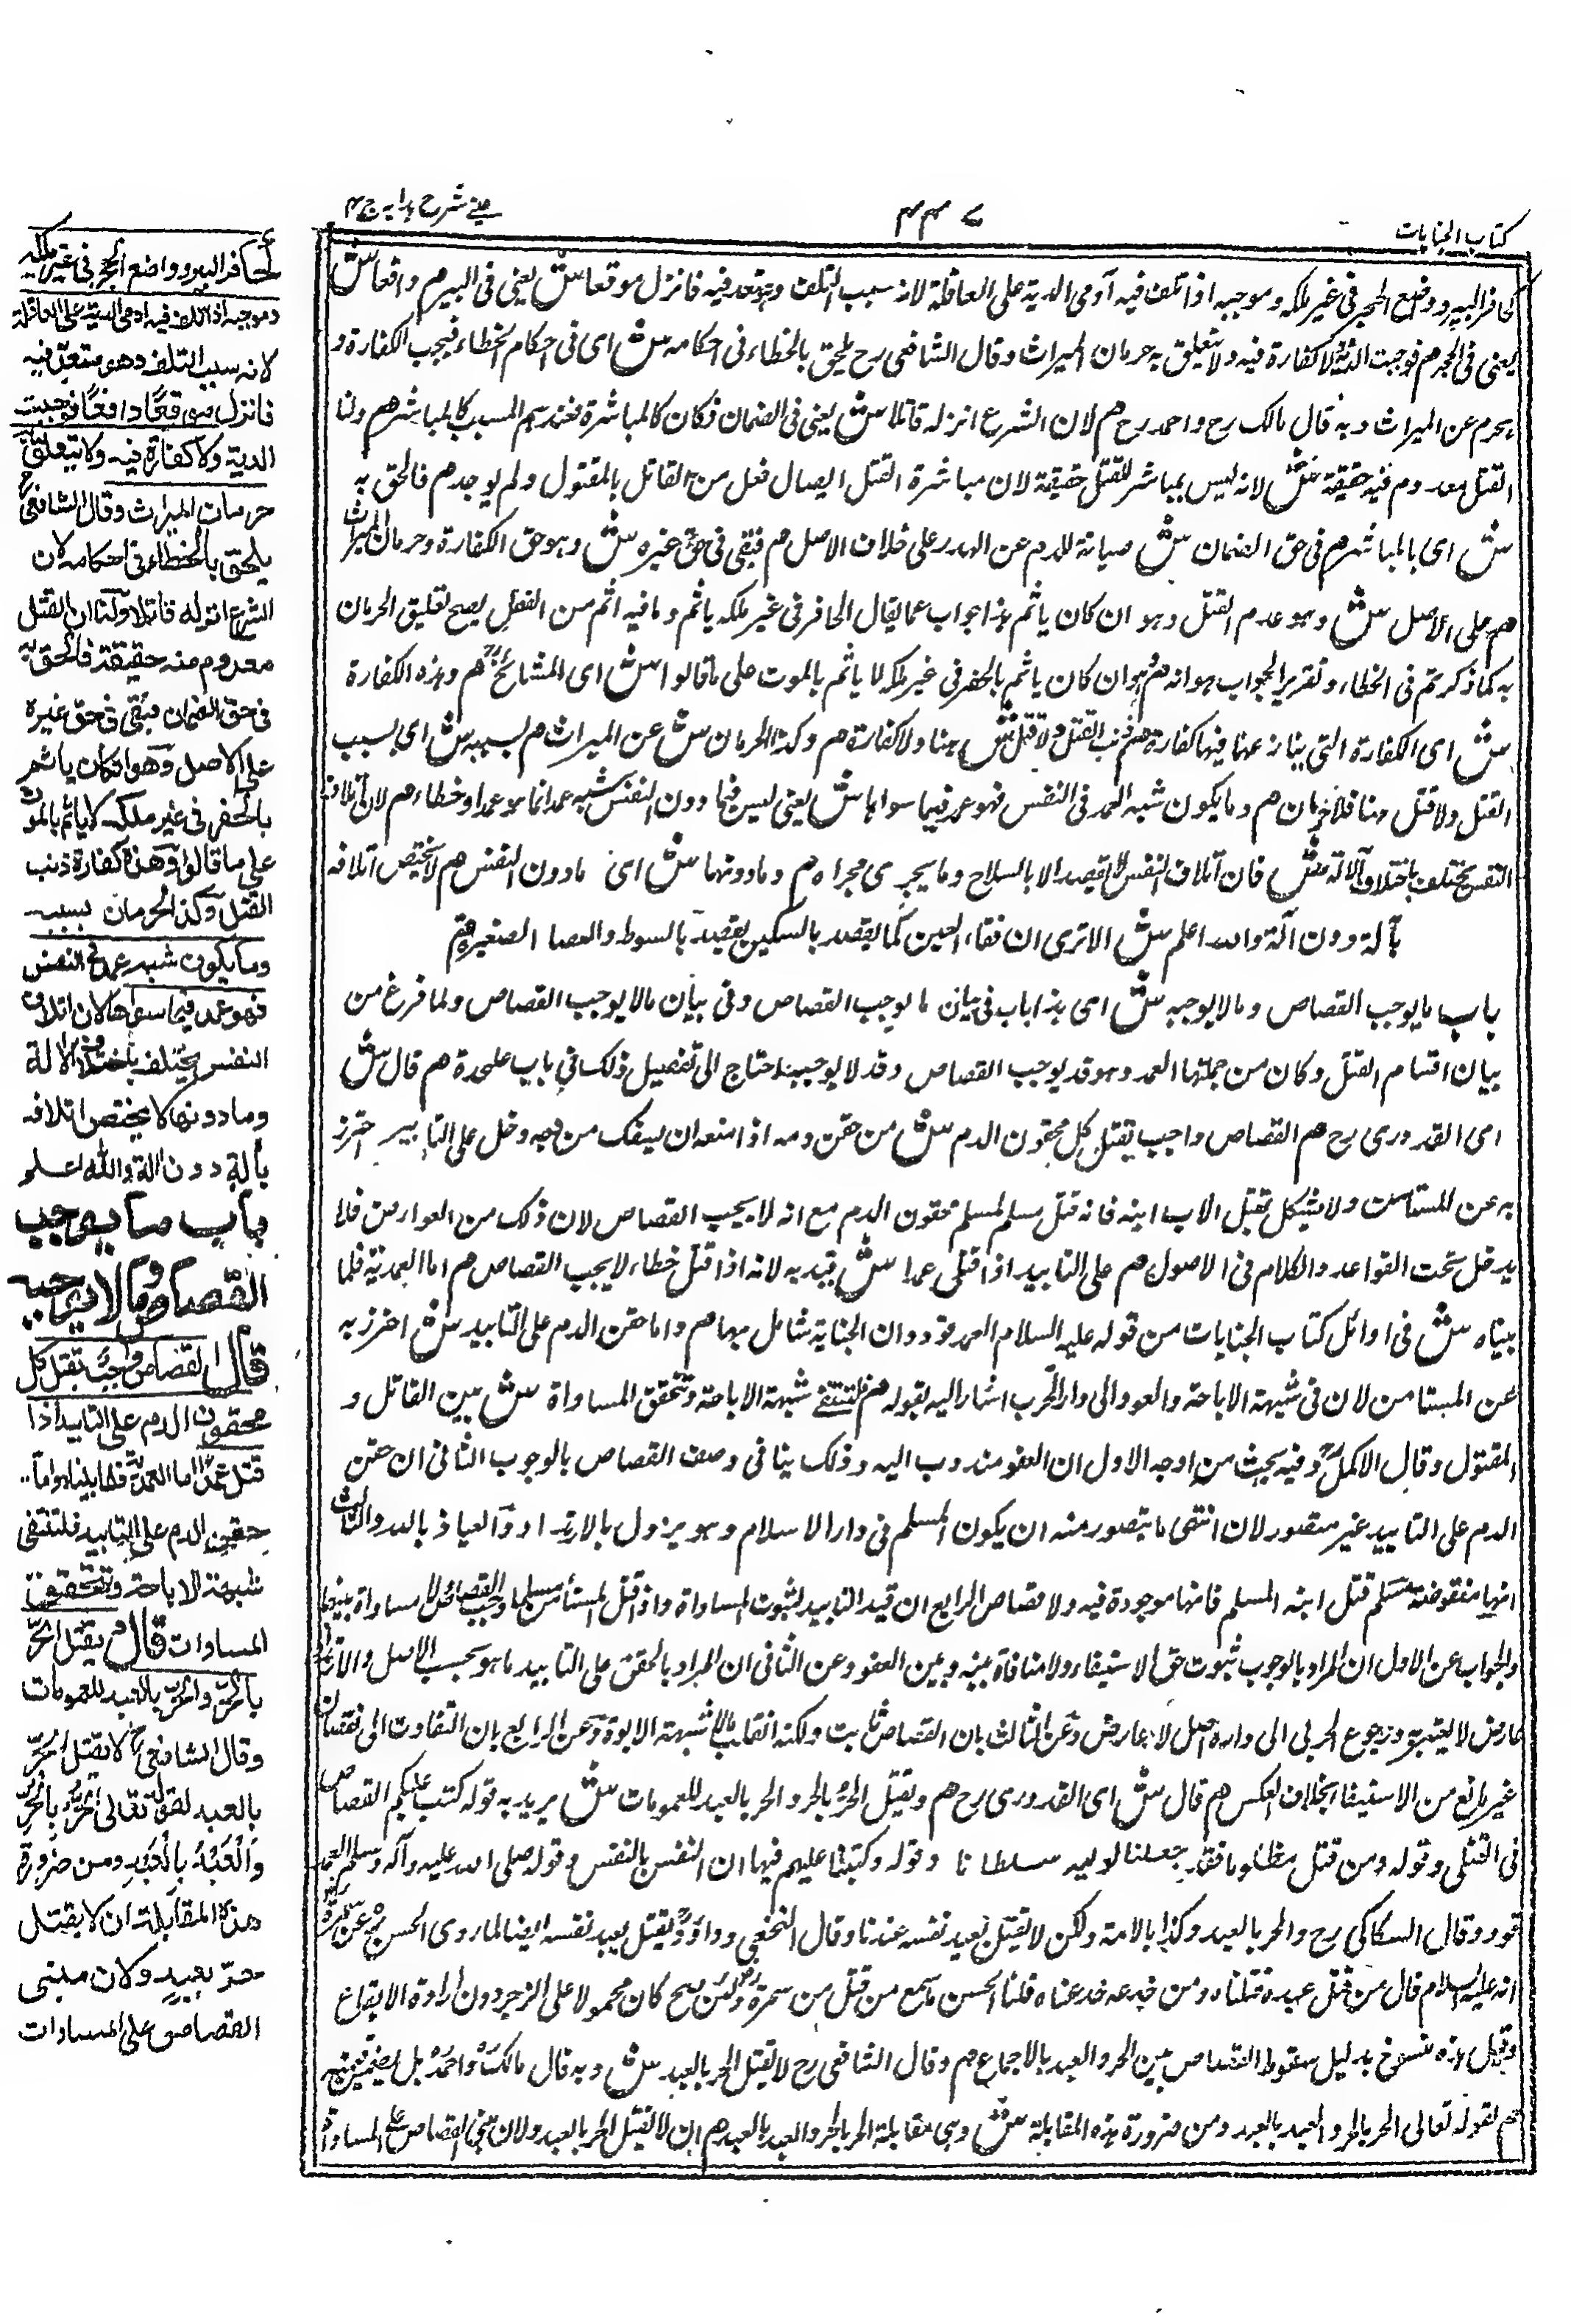 كتاب الجنايات
عينے شرح ہدايہ ج ۴
كحافر البير ووضع الحجر فى غير ملكه وموجبه اذا تلف فيه آدمى الدية على العاقلة لانه سبب التلف وهو متعد فيه فانزل موقعا ش يعنى فى البير م و دافعا ش
يعنى فى الحجر م فوجبت الدية ولا كفارة فيه ولا يتعلق به حرمان الميراث وقال الشافعى رح يلحق بالخطاء فى احكامه ش اى فى احكام الخطاء فيجب الكفارة و
يحرم عن الميراث وبه قال مالك رح و احمد رح م لان الشرع انزله قاتلا ش يعنى فى الضمان فكان كالمباشرة فعندهم المسبب كالمباشر م ولنا
القتل معدوم منه حقيقة ش لانه ليس بمباشر للقتل حقيقة لان مباشرة القتل ايصال فعل من القاتل بالمقتول ولم يوجد م فالحق به
ش اى بالمباشر م فى حق الضمان ش صيانة للدم عن الهدر على خلاف الاصل م فبقى فى حق غيره ش وهو حق الكفارة وحرمان الميراث
م على الاصل ش وهو عدم القتل وهو ان كان ياثم هذا جواب عما يقال الحافر فى غير ملكه ياثم وما فيه اثم من الفعل يصح تعليق الحرمان
به كما ذكرتم فى الخطاء وتقرير الجواب هو انه م وهو ان كان ياثم بالحفر فى غير ملكه لا ياثم بالموت على ما قالوا ش اى المشائخ رح م وهذه الكفارة
ش اى الكفارة التى يتنازعنا فيها كفارة م ذنب القتل ولا قتل ش هنا ولا كفارة م وكذا الحرمان ش عن الميراث م بسببه ش اى بسبب
القتل ولا قتل هنا فلا حرمان م وما يكون شبه العمد فى النفس فهو عمد فيما سواها ش يعنى ليس فيما دون النفس شبه عمد انما هو عمد او خطاء م لان اتلاف
النفس يختلف باختلاف الآلة ش فان اتلاف النفس لا يقصد الا بالسلاح وما يجرى مجراه م وما دونها ش اى ما دون النفس م لا يختص اتلافه
بآلة دون آلة والله اعلم ش الا ترى ان فقاء العين كما يقصد بالسكين يقصد بالسوط والعصا الصغير
باب ما يوجب القصاص وما لا يوجبه ش اى هذا باب فى بيان ما يوجب القصاص وفى بيان ما لا يوجب القصاص ولما فرغ من
بيان اقسام القتل وكان من جملتها العمد وهو قد يوجب القصاص وقد لا يوجبه احتاج الى تفصيل ذلك فى باب عليحدة م قال ش
اى القدورى رح م القصاص واجب بقتل كل محقون الدم ش من حقن دمه اذا منعه ان يسفك من وجه وخل على التابيد احترز
به عن المستامن ولا يشكل بقتل الاب ابنه فانه قتل مسلم لمسلم محقون الدم مع انه لا يجب القصاص لان ذلك من العوارض فلا
يدخل تحت القواعد والكلام فى الاصول م على التابيد اذا قتل عمدا ش قيد به لانه اذا قتل خطاء لا يجب القصاص م اما العمدية فلما
بيناه ش فى اوائل كتاب الجنايات من قوله عليه السلام العمد قود وان الجناية تتكامل بها م واما حقن الدم على التابيد ش احترز به
عن المستامن لان فى شبهة الاباحة والعود الى دار الحرب اشار اليه بقوله م فلتنتفے شبهة الاباحة وتتحقق المساواة ش بين القاتل و
المقتول وقال الاكمل رح وفيه بحث من اوجه الاول ان العفو مندوب اليه وذلك ينافى وصف القصاص بالوجوب الثانى ان حقن
الدم على التابيد غير متصور لان انتهى ما يتصور منه ان يكون المسلم فى دار الاسلام وهو يزول بالارتداد والعياذ بالله والثالث
انها منقوضة بمسلم قتل ابنه المسلم فانها موجودة فيه ولا قصاص الرابع ان قيد التابيد لثبوت المساواة واذا قتل المستامن مسلما وجب القصاص ولا مساواة بينهما
والجواب عن الاول ان المراد بالوجوب ثبوت حق الاستيفاء ولا منافاة بينه وبين العفو وعن الثانى ان المراد بالحقن على التابيد ما هو بحسب الاصل والارتداد
عارض لا يعتبر ورجوع الحربى الى داره اصل لا عارض وعن الثالث بان القصاص ثابت ولكنه انقلب مالا بشبهة الابوة وعن الرابع بان التفاوت الى نقصان
غير مانع من الاستيفاء بخلاف العكس م قال ش اى القدورى رح م ويقتل الحر بالحر والحر بالعبد للعمومات ش يريد به قوله كتب عليكم القصاص
فى القتلى وقوله ومن قتل مظلوما فقد جعلنا لوليه سلطانا وقوله وكتبنا عليهم فيها ان النفس بالنفس وقوله صلى الله عليه وآله وسلم العمد
قود وقال السكاكى رح والحر بالعبد وكذا بالامة ولكن لا يقتل بعبد نفسه عندنا وقال النخعى وداؤد يقتل بعبد نفسه ايضا لما روى الحسن رح عن سمرة رض
انه عليه السلام قال من قتل عبده قتلناه ومن جدعه جدعناه قلنا الحسن ما سمع من قتل من سمرة رض ولئن صح كان محمولا على الزجر دون ارادة الايقاع
وقيل هذه منسوخ بدليل سقوط القصاص بين الحر والعبد بالاجماع م وقال الشافعى رح لا يقتل الحر بالعبد ش وبه قال مالك رح واحمد رح بل يضمن
م لقوله تعالى الحر بالحر والعبد بالعبد ومن ضرورة هذه المقابلة ش وهى مقابلة الحر بالحر والعبد بالعبد م ان لا يقتل الحر بالعبد ولان مبنى القصاص على المساواة
كحافر البير وواضع الحجر فى غير ملكه
وموجبه اذا تلف فيه ادمى الدية على العاقلة
لانه سبب التلف وهو متعد فيه
فانزل موقعًا ودافعًا فوجبت
الدية ولا كفارة فيه ولا يتعلق به
حرمان الميراث وقال الشافعى رح
يلحق بالخطاء فى احكامه لان
الشرع انزله قاتلا ولنا ان القتل
معدوم منه حقيقة فالحق به
فى حق الضمان فبقى فى حق غيره
على الاصل وهو ان كان ياثم
بالحفر فى غير ملكه لا ياثم بالموت
على ما قالوا وهذه كفارة ذنب
القتل وكذا الحرمان بسببه
وما يكون شبه عمد فى النفس
فهو عمد فيما سواها لان اتلاف
النفس يختلف باختلاف الالة
وما دونها لا يختص اتلافه
بألة دون الة والله اعلم
باب ما يوجب
القصاص وما لا يوجبه
قال القصاص واجب بقتل كل
محقون الدم على التابيد اذا
قتل عمدًا اما العمدية فلما بيناه واما
حقن الدم على التابيد فلتنتفى
شبهة الاباحة وتتحقق
المساوات قال ويقتل الحر
بالحر والحر بالعبد للعمومات
وقال الشافعى رح لا يقتل الحر
بالعبد لقوله تعالى الحر بالحر
والعبد بالعبد ومن ضرورة
هذه المقابلة ان لا يقتل
حر بعبد ولان مبنى
القصاص على المساوات